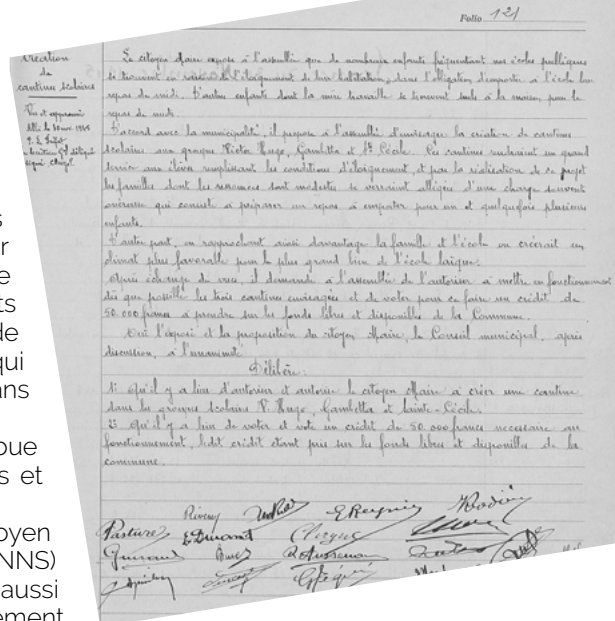 Folio 121
Création
de
cantines scolaires
Vu et approuvé
Le citoyen Maire expose à l'assemblée que de nombreux enfants fréquentant nos écoles publiques
se trouvent en raison de l'éloignement de leur habitation, dans l'obligation d'emporter à l'école leur
repas de midi. D'autres enfants dont la mère travaille se trouvent seuls à la maison pour le
repas de midi.
D'accord avec la municipalité, il propose à l'assemblée d'envisager la création de cantines
scolaires aux groupes Victor Hugo, Gambetta et Ste Cécile. Ces cantines rendraient un grand
service aux élèves remplissant les conditions d'éloignement, et par la réalisation de ce projet
les familles dont les ressources sont modestes se verraient allégées d'une charge souvent
onéreuse qui consiste à préparer un repas à emporter pour un et quelquefois plusieurs
enfants.
D'autre part, en rapprochant ainsi davantage la famille et l'école on créerait un
climat plus favorable pour le plus grand bien de l'école laïque.
Après échange de vues, il demande à l'assemblée de l'autoriser à mettre en fonctionnement
dès que possible les trois cantines envisagées et de voter pour ce faire un crédit de
50.000 francs à prendre sur les fonds libres et disponibles de la Commune.
Ouï l'exposé et la proposition du citoyen Maire, le Conseil municipal, après
discussion, à l'unanimité
Délibère:
1° Qu'il y a lieu d'autoriser et autorise le citoyen Maire à créer une cantine
dans les groupes scolaires V. Hugo, Gambetta et Sainte-Cécile.
2° Qu'il y a lieu de voter et vote un crédit de 50.000 francs nécessaire au
fonctionnement, ledit crédit étant pris sur les fonds libres et disponibles de la
commune.
Pasturel E. Durand Clergue E. Reynier
Guiraud
s
r
e
ts
de
qui
ans
oue
s et
oyen
NNS)
aussi
ement